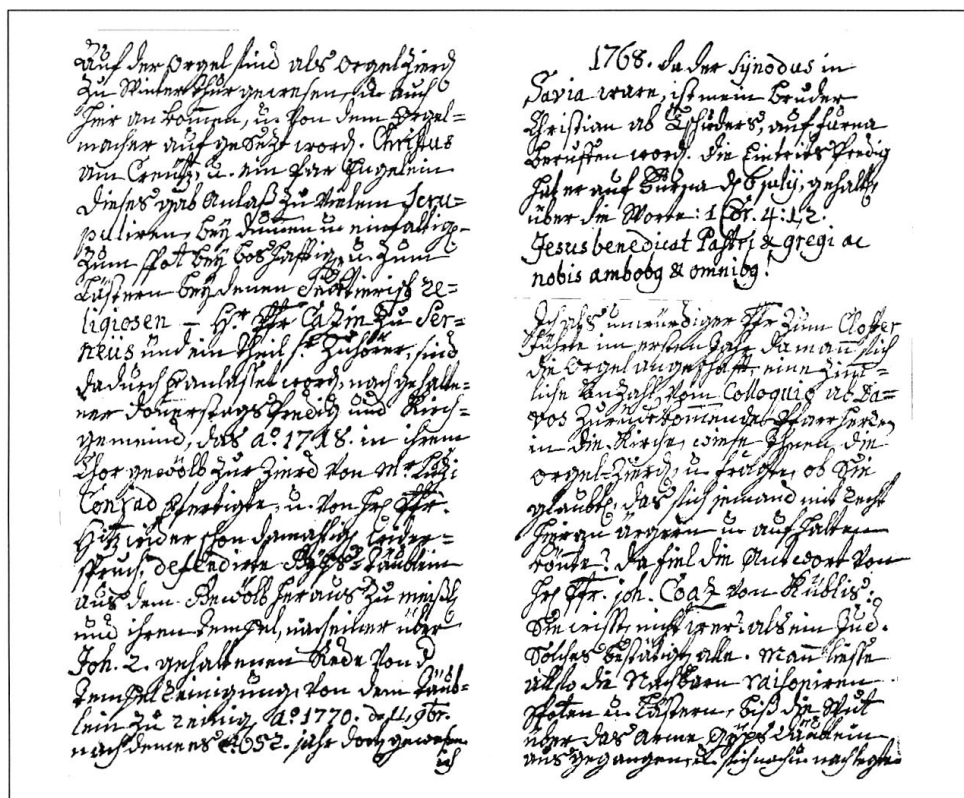 Auf der Orgel sind als Orgel Zierd
Zu Winterthur gewesen, u. auch
hier an kommen, u. von dem Orgel=
macher auf gesezt word. Christus
am Creütz, u. ein Par Engelein
dieses gab Anlaß zu vielem Scru=
puliren, bey dumen u. einfältig=
zum Spot bey boshafftig, u. zum
Lästern bey denen Sectierisch re=
ligiosen — Hr. Pfr Cazin zu Ser=
neüs und ein theil sr. Zuhörer, sind
dadurch veranlasset word, nach gehalte=
ner donerstags Predig und Kirch=
gemeind, das aº. 1718. in ihrem
Chor gewölb zur Zierd von Mr.
Conrad verfertigte, u. von Hrn Pfr.
Hitz wider schon damahlig wider=
spruch, defendirte Gÿps=Täublein
aus dem Gewölb heraus zu meißl
und ihren Tempel, nach einer über
Joh. 2. gehaltenen Rede von d
Tempel Reinigung, von dem Täub=
lein zu reinig, Aº. 1770. d. 11. 9br.
nach demme es 52. jahr dort gewesen
ich
1768. da der Synodus in
Savia ware, ist mein bruder
Christian ab Tschuders, auf furna
beruffen word. die Eintrits Predig
hat er auf furna d 6 July, gehalt,
über die Worte: 1 Cor. 4: 1,2.
Jesus benedicat Pastori & gregi ac
nobis ambobg & omnibg!
Ich als unwürdiger Pfr zum Closter
führte im ersten Jahr, da mann sich
die Orgel angeschafft, eine zim=
liche Anzahl, vom Colloquio ab Da=
vos zurückkommende Pfarrherren
in die Kirche, wiese Ihnen die
Orgel=Zierd, u. fragte, ob Sie
glaubten, das sich jemand mit recht
hieran ärgern u. aufhalten
könte? Da fiel die Antwort von
Hrn Pfr. Joh. Coaz von Küblis:
Sie wisse nicht wer? als ein Jud.
Solches bestätigt alle. Mann liesse
also die Nachbarn raisoniren
Spoten u. Lästern, biß die Wut
über das arme Gÿps Täublein
ausgegangen, u. sich nach u. nach legte